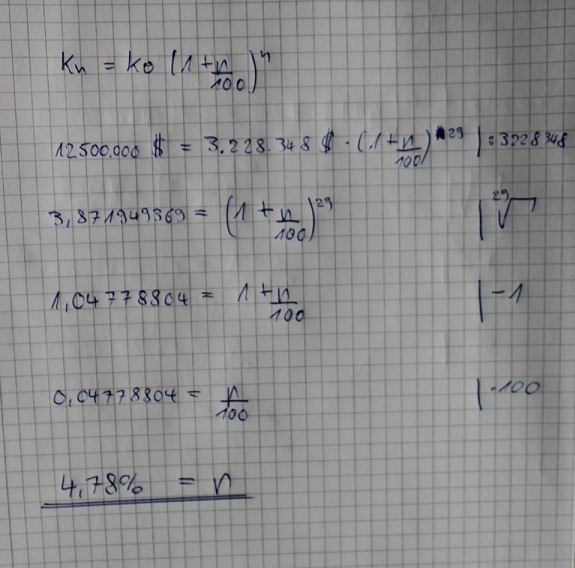 Kn = K0 (1 + n/100)^n
12500.000 $ = 3.228.348 $ · (1 + n/100)^29 | : 3228348
3,871949369 = (1 + n/100)^29 | 29√
1,04778804 = 1 + n/100 | -1
0,04778804 = n/100 | ·100
4,78% = n